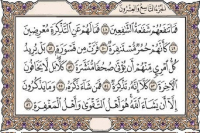 الجزء التاسع والعشرون
فَمَا تَنفَعُهُمْ شَفَٰعَةُ ٱلشَّٰفِعِينَ ٤٨ فَمَا لَهُمْ عَنِ ٱلتَّذْكِرَةِ مُعْرِضِينَ
٤٩ كَأَنَّهُمْ حُمُرٌ مُّسْتَنفِرَةٌ ٥٠ فَرَّتْ مِن قَسْوَرَةٍ ٥١ بَلْ يُرِيدُ
كُلُّ ٱمْرِئٍ مِّنْهُمْ أَن يُؤْتَىٰ صُحُفًا مُّنَشَّرَةً ٥٢ كَلَّا بَل لَّا يَخَافُونَ
ٱلْءَاخِرَةَ ٥٣ كَلَّا إِنَّهُ تَذْكِرَةٌ ٥٤ فَمَن شَاءَ ذَكَرَهُ ٥٥ وَمَا يَذْكُرُونَ
إِلَّا أَن يَشَاءَ ٱللَّهُ هُوَ أَهْلُ ٱلتَّقْوَىٰ وَأَهْلُ ٱلْمَغْفِرَةِ ٥٦